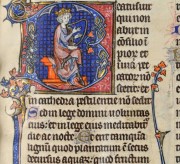 eatus uir
qui non
abiit in
consilio im
pior et
in uia pec
cator no
stetit et
in cathedra pestilentie no sedit
Sed in lege domini uoluntas
eius et in lege eius meditabitur
die ac nocte Et erit tam
lignum quod plantatum est secus
decursus aquar quod fructum